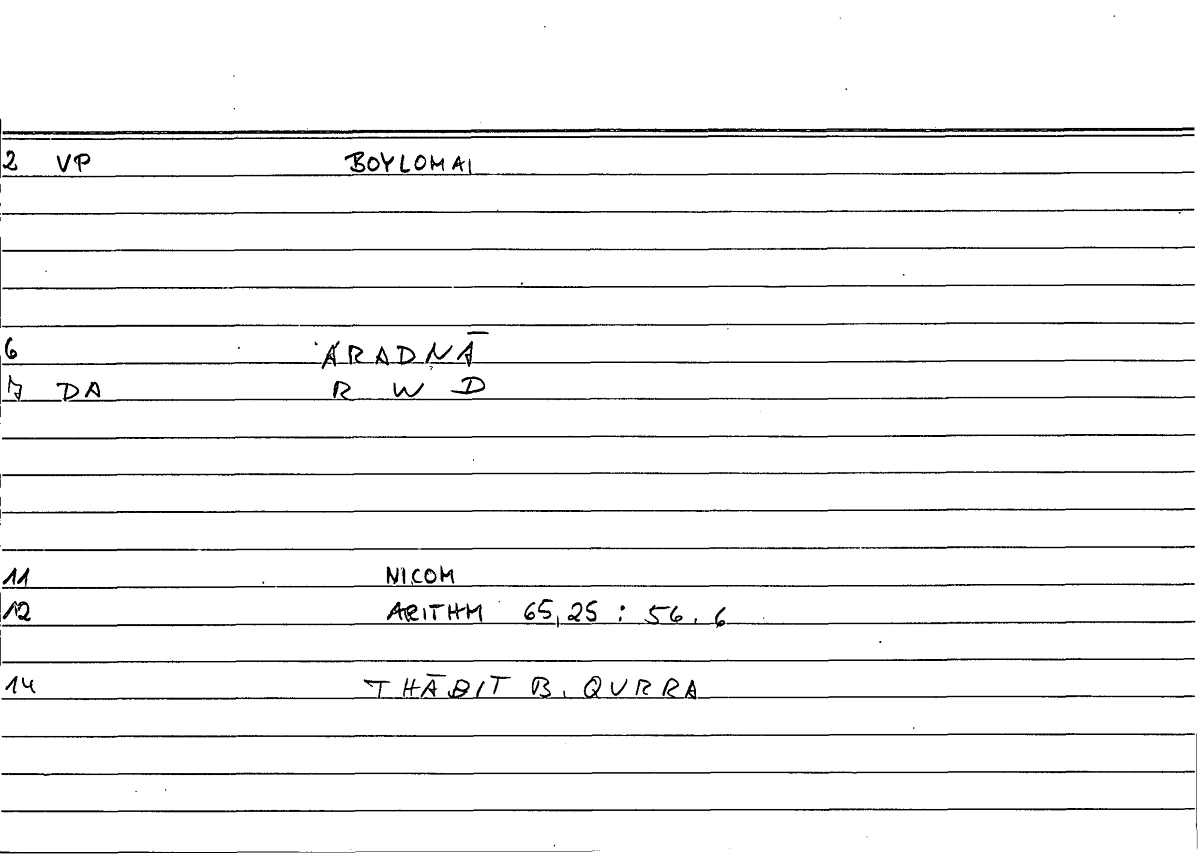 2 VP BOYLOMAI
6 'ARADNĀ
7 DA R W D
11 NICOM
12 ARITHM 65,25 : 56.6
14 THĀBIT B. QURRA